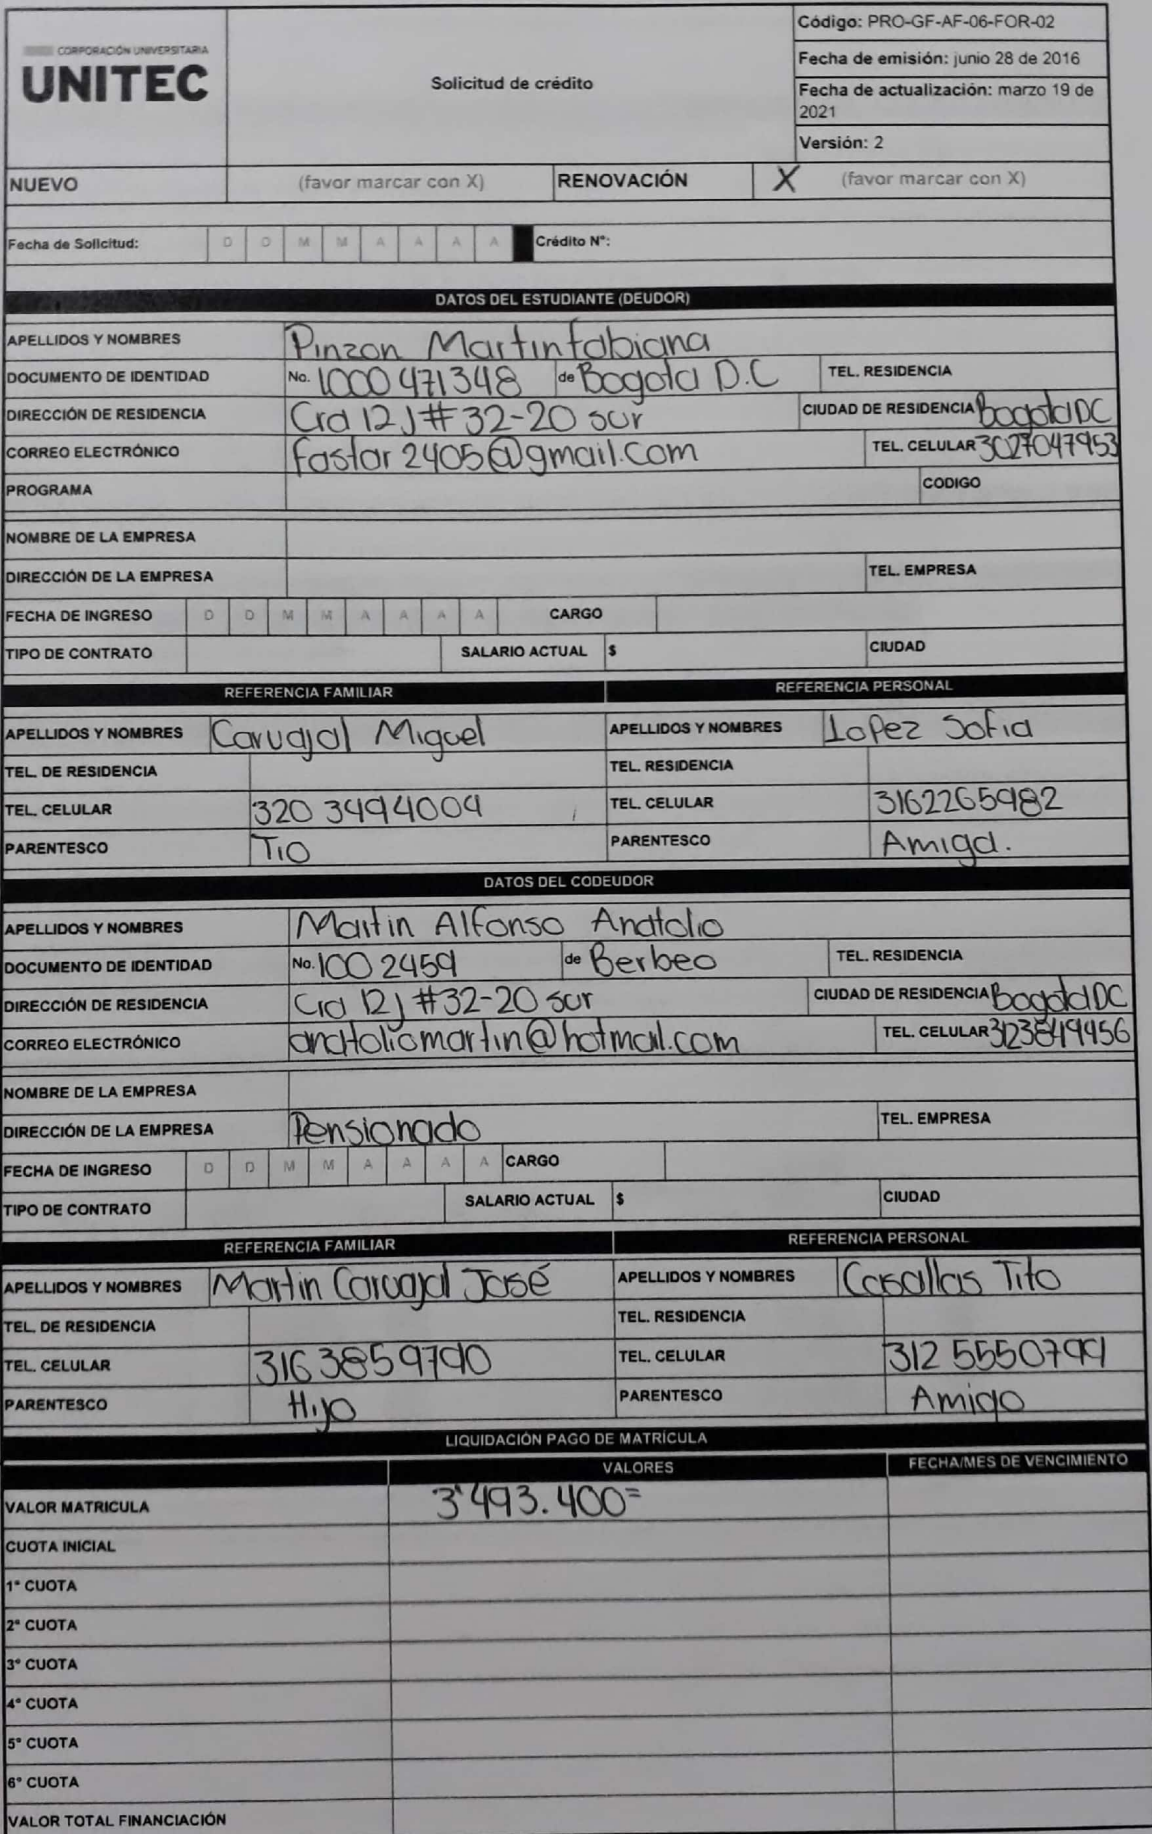 CORPORACIÓN UNIVERSITARIA
UNITEC
Solicitud de crédito
Código: PRO-GF-AF-06-FOR-02
Fecha de emisión: junio 28 de 2016
Fecha de actualización: marzo 19 de
2021
Versión: 2
NUEVO (favor marcar con X) RENOVACIÓN X (favor marcar con X)
Fecha de Solicitud: D D M M A A A A Crédito N°:
DATOS DEL ESTUDIANTE (DEUDOR)
APELLIDOS Y NOMBRES Pinzon Martin fabiana
DOCUMENTO DE IDENTIDAD No. 1000 471348 de Bogota D.C TEL. RESIDENCIA
DIRECCIÓN DE RESIDENCIA Cra 12 J # 32-20 sur CIUDAD DE RESIDENCIA Bogota DC
CORREO ELECTRÓNICO fastar2405@gmail.com TEL. CELULAR 3027047953
PROGRAMA CODIGO
NOMBRE DE LA EMPRESA
DIRECCIÓN DE LA EMPRESA TEL. EMPRESA
FECHA DE INGRESO D D M M A A A A CARGO
TIPO DE CONTRATO SALARIO ACTUAL $ CIUDAD
REFERENCIA FAMILIAR REFERENCIA PERSONAL
APELLIDOS Y NOMBRES Carvajal Miguel APELLIDOS Y NOMBRES Lopez Sofia
TEL. DE RESIDENCIA TEL. RESIDENCIA
TEL. CELULAR 320 3494004 TEL. CELULAR 3162265982
PARENTESCO Tio PARENTESCO Amiga.
DATOS DEL CODEUDOR
APELLIDOS Y NOMBRES Martin Alfonso Anatolio
DOCUMENTO DE IDENTIDAD No. 100 2459 de Berbeo TEL. RESIDENCIA
DIRECCIÓN DE RESIDENCIA Cra 12 J #32-20 sur CIUDAD DE RESIDENCIA Bogota DC
CORREO ELECTRÓNICO anatoliomartin@hotmail.com TEL. CELULAR 3123849456
NOMBRE DE LA EMPRESA
DIRECCIÓN DE LA EMPRESA Pensionado TEL. EMPRESA
FECHA DE INGRESO D D M M A A A A CARGO
TIPO DE CONTRATO SALARIO ACTUAL $ CIUDAD
REFERENCIA FAMILIAR REFERENCIA PERSONAL
APELLIDOS Y NOMBRES Martin Carvajal José APELLIDOS Y NOMBRES Casallas Tito
TEL. DE RESIDENCIA TEL. RESIDENCIA
TEL. CELULAR 316 3859790 TEL. CELULAR 312 5550799
PARENTESCO Hijo PARENTESCO Amigo
LIQUIDACIÓN PAGO DE MATRÍCULA
VALORES FECHA/MES DE VENCIMIENTO
VALOR MATRICULA 3'493.400=
CUOTA INICIAL
1° CUOTA
2° CUOTA
3° CUOTA
4° CUOTA
5° CUOTA
6° CUOTA
VALOR TOTAL FINANCIACIÓN